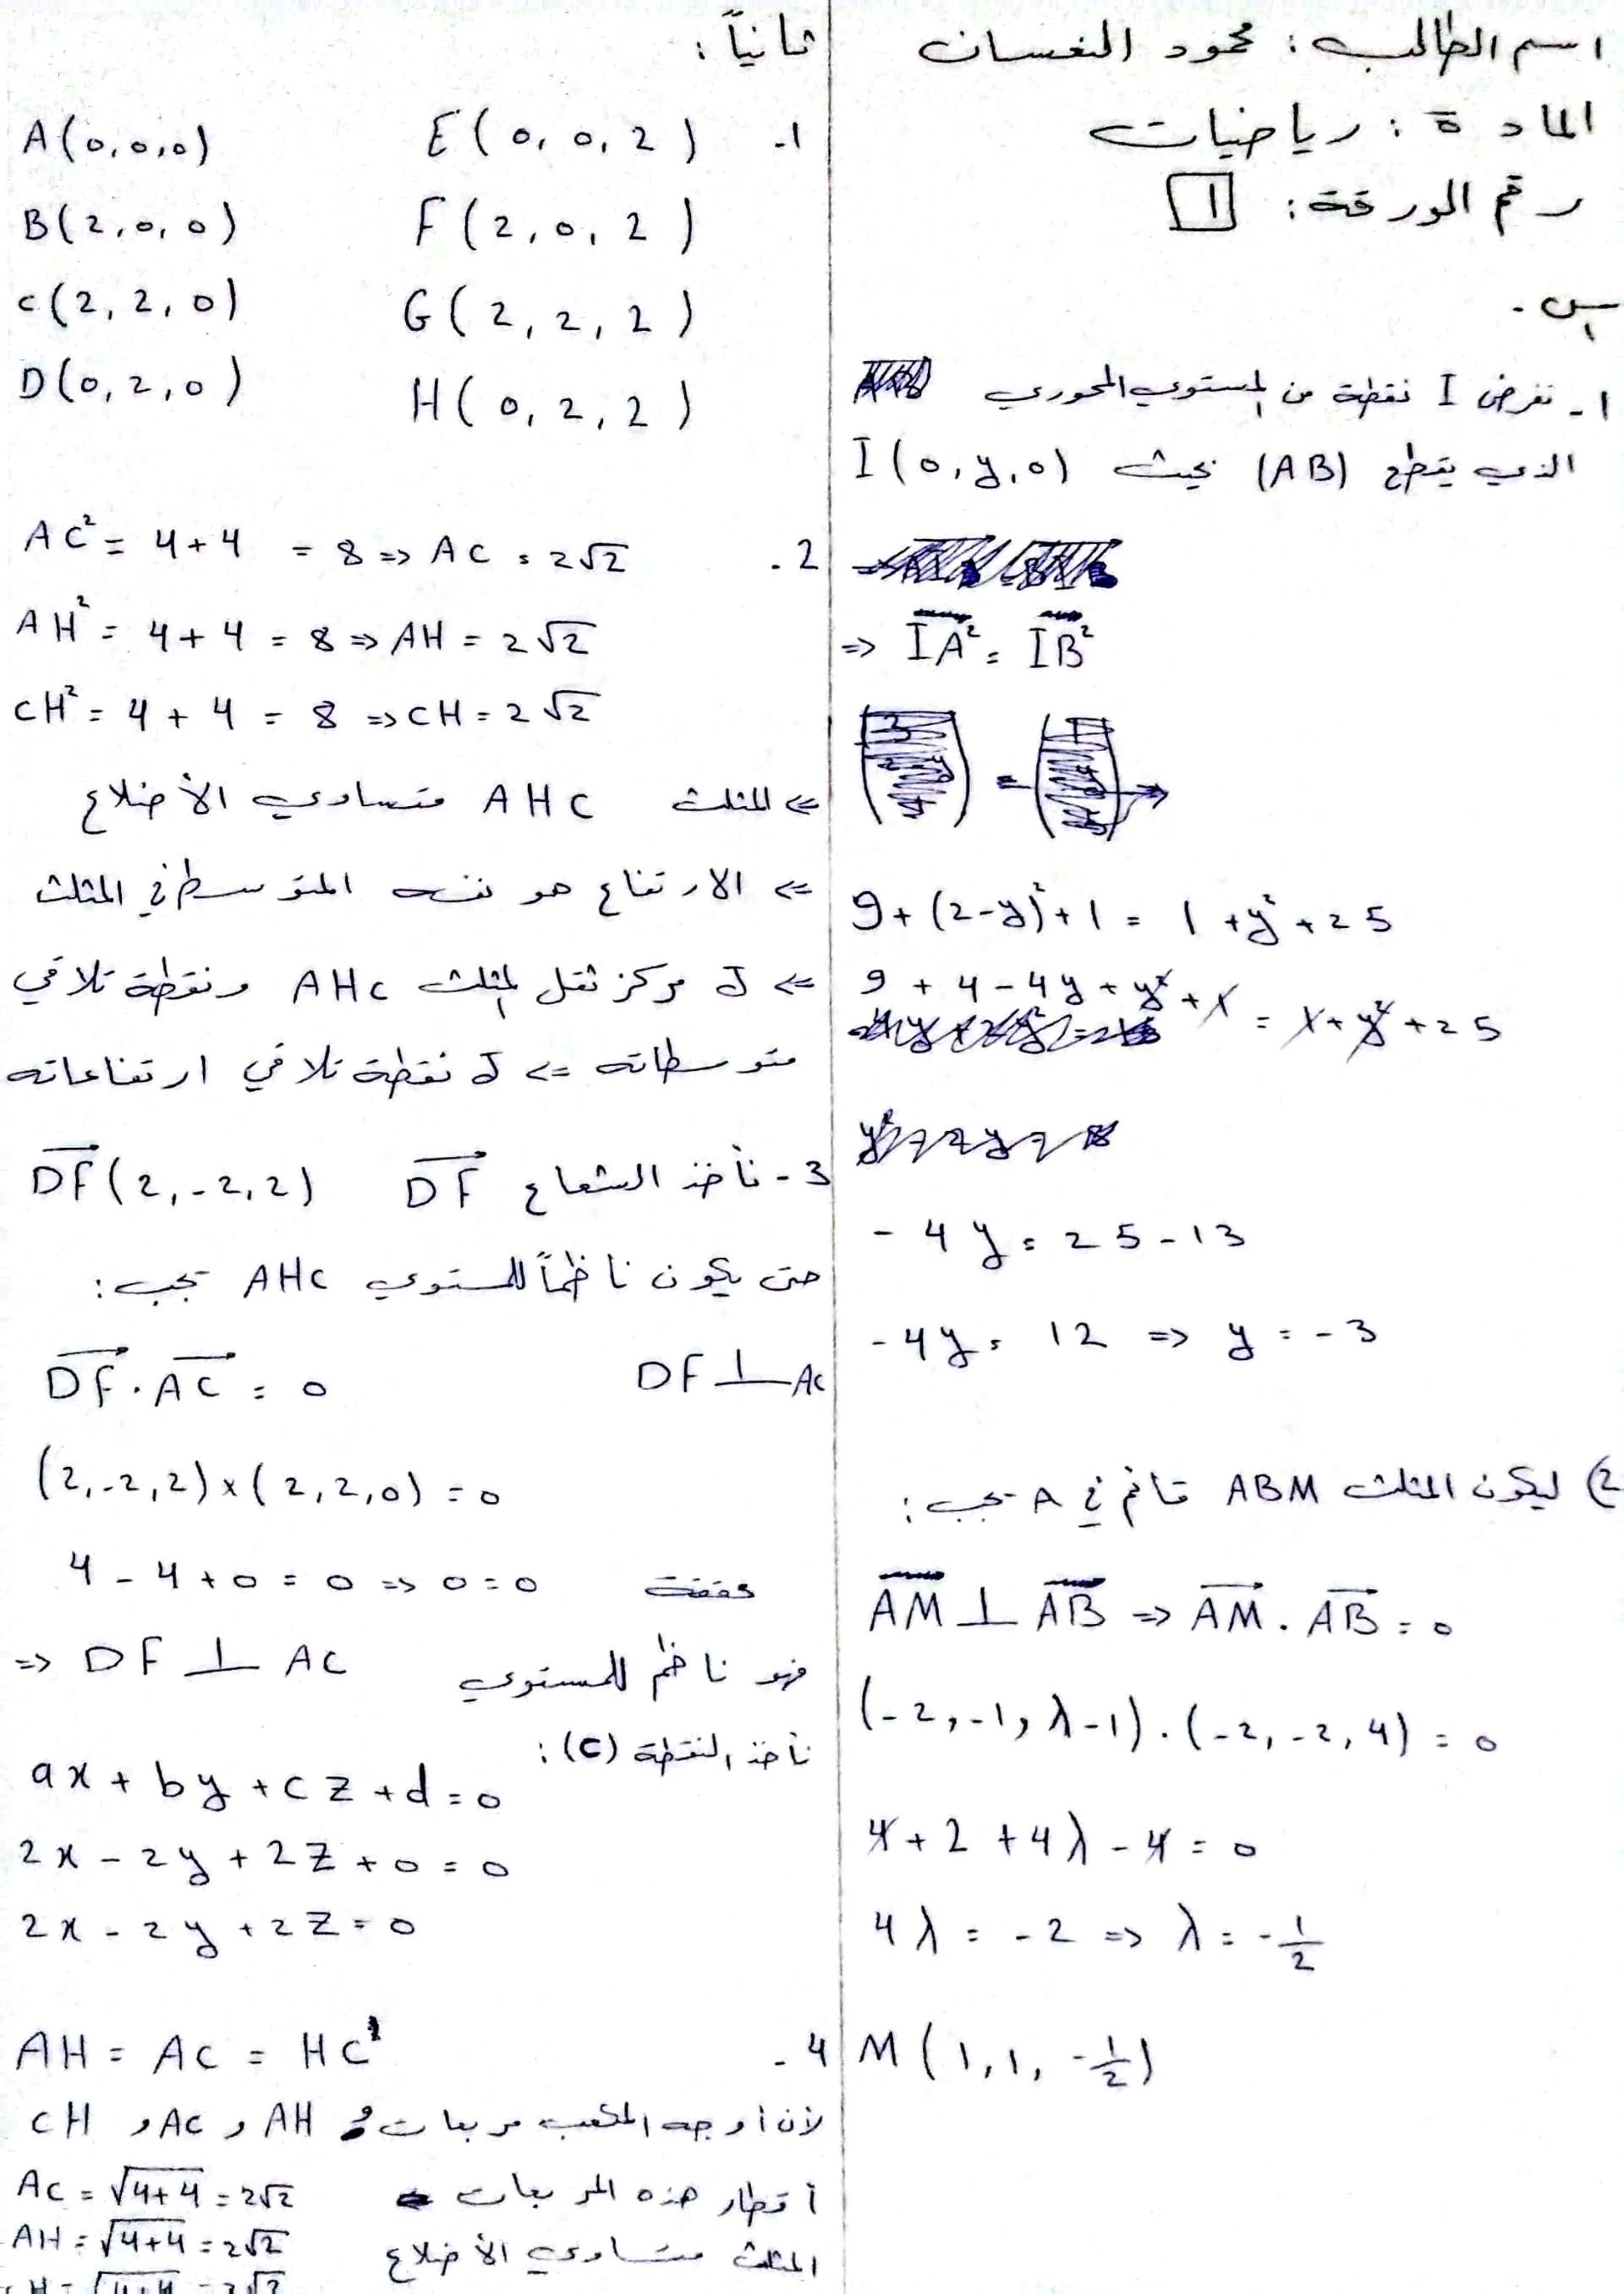 اسم الطالب : محمود الغسان
المادة : رياضيات
رقم الورقة : 1
س١.
1- نفرض I نقطة من المستوي المحوري
الذي يقطع (AB) بحيث I(0,y,0)
=> IA² = IB²
9+(2-y)²+1 = 1+y²+25
9+4-4y+y²+1 = 1+y²+25
-4y = 25-13
-4y = 12 => y = -3
2) ليكون المثلث ABM قائم في A يجب :
AM ⊥ AB => AM . AB = 0
(-2,-1,λ-1).(-2,-2,4) = 0
4+2+4λ-4 = 0
4λ = -2 => λ = -1/2
M(1,1,-1/2)
ثانياً :
1- A(0,0,0) E(0,0,2)
B(2,0,0) F(2,0,2)
C(2,2,0) G(2,2,2)
D(0,2,0) H(0,2,2)
2. AC² = 4+4 = 8 => AC = 2√2
AH² = 4+4 = 8 => AH = 2√2
CH² = 4+4 = 8 => CH = 2√2
<= المثلث AHC متساوي الأضلاع
<= الارتفاع هو نفسه المتوسط في المثلث
<= J مركز ثقل المثلث AHC ونقطة تلاقي
متوسطاته <= J نقطة تلاقي ارتفاعاته
3- نأخذ الشعاع DF DF(2,-2,2)
حتى يكون ناظماً للمستوي AHC يجب :
DF ⊥ AC DF . AC = 0
(2,-2,2)×(2,2,0) = 0
4-4+0 = 0 => 0=0 محققة
=> DF ⊥ AC فهو ناظم للمستوي
نأخذ النقطة (C) :
ax+by+cz+d=0
2x-2y+2z+0=0
2x-2y+2z=0
4- AH = AC = HC
لأن أوجه المكعب مربعات و AH و AC و CH
أقطار هذه المربعات AC = √4+4 = 2√2
AH = √4+4 = 2√2
المثلث متساوي الأضلاع